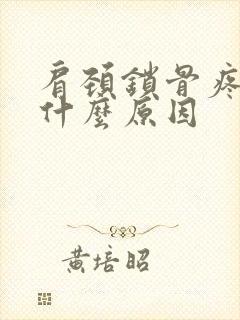 肩頚鎖骨疼
什麼原因
黃培昭